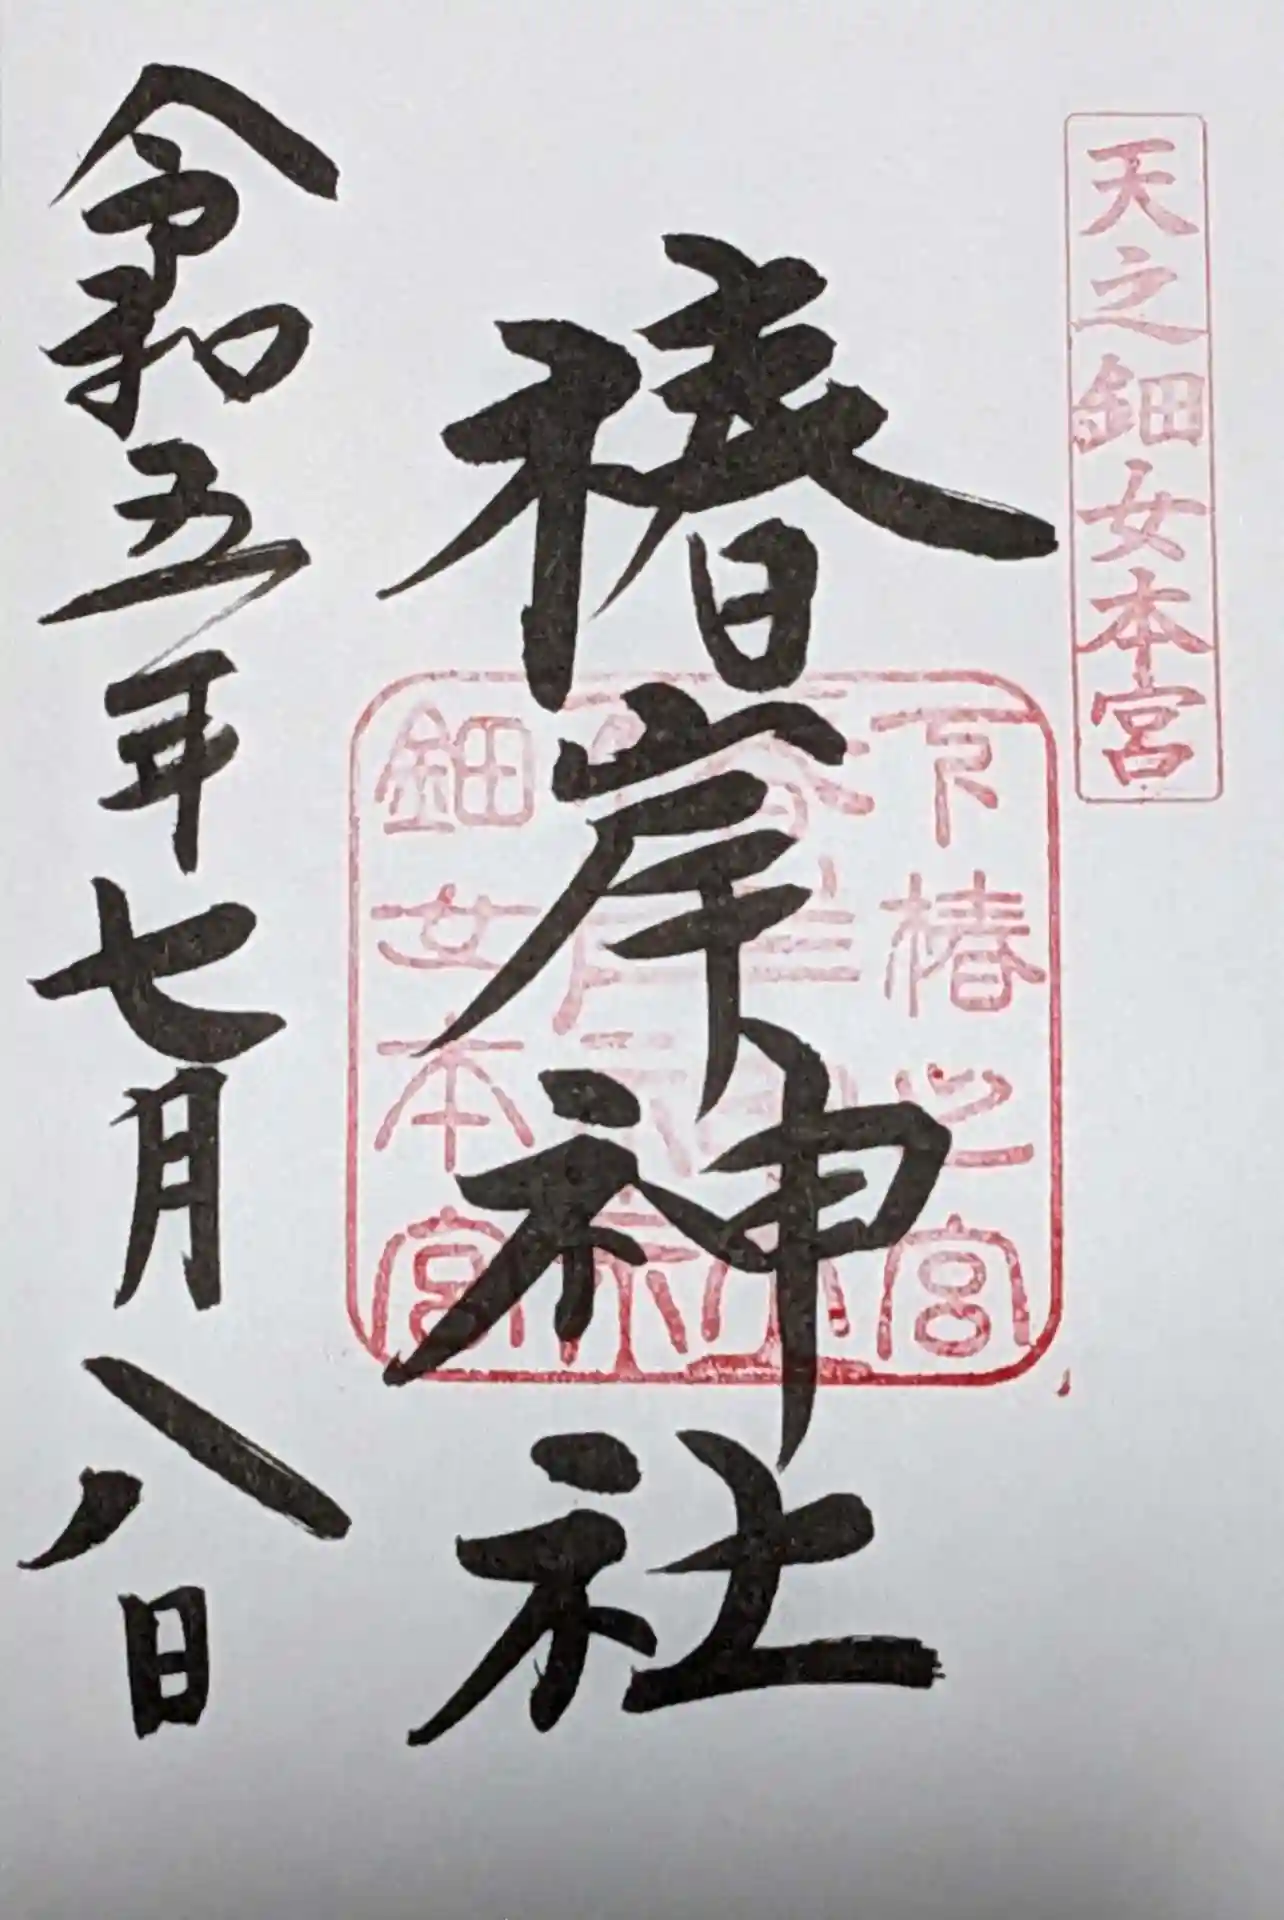 天之鈿女本宮
椿岸神社
下椿之宮
鈿女本宮
令和五年七月八日